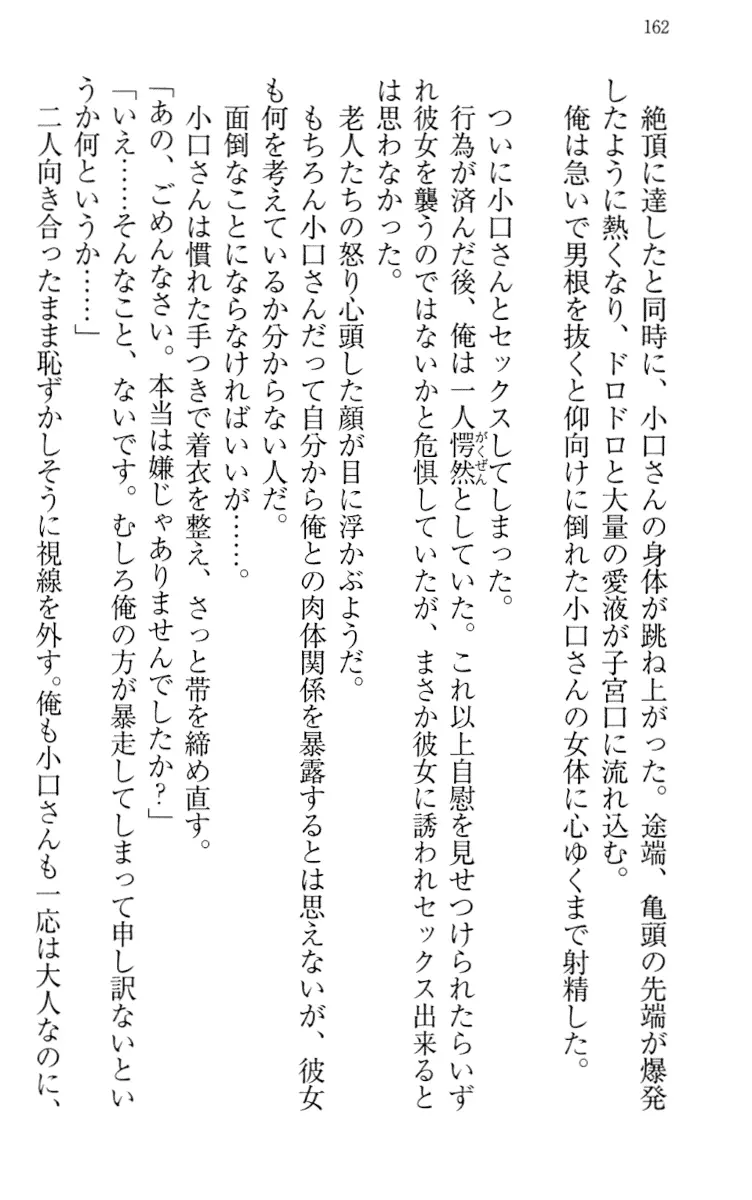 162
絶頂に達したと同時に、小口さんの身体が跳ね上がった。途端、亀頭の先端が爆発
したように熱くなり、ドロドロと大量の愛液が子宮口に流れ込む。
俺は急いで男根を抜くと仰向けに倒れた小口さんの女体に心ゆくまで射精した。
ついに小口さんとセックスしてしまった。
行為が済んだ後、俺は一人愕然としていた。これ以上自慰を見せつけられたらいず
がくぜん
れ彼女を襲うのではないかと危惧していたが、まさか彼女に誘われセックス出来ると
は思わなかった。
老人たちの怒り心頭した顔が目に浮かぶようだ。
もちろん小口さんだって自分から俺との肉体関係を暴露するとは思えないが、彼女
も何を考えているか分からない人だ。
面倒なことにならなければいいが……。
小口さんは慣れた手つきで着衣を整え、さっと帯を締め直す。
「あの、ごめんなさい。本当は嫌じゃありませんでしたか?」
「いえ……そんなこと、ないです。むしろ俺の方が暴走してしまって申し訳ないとい
うか何というか……」
二人向き合ったまま恥ずかしそうに視線を外す。俺も小口さんも一応は大人なのに、